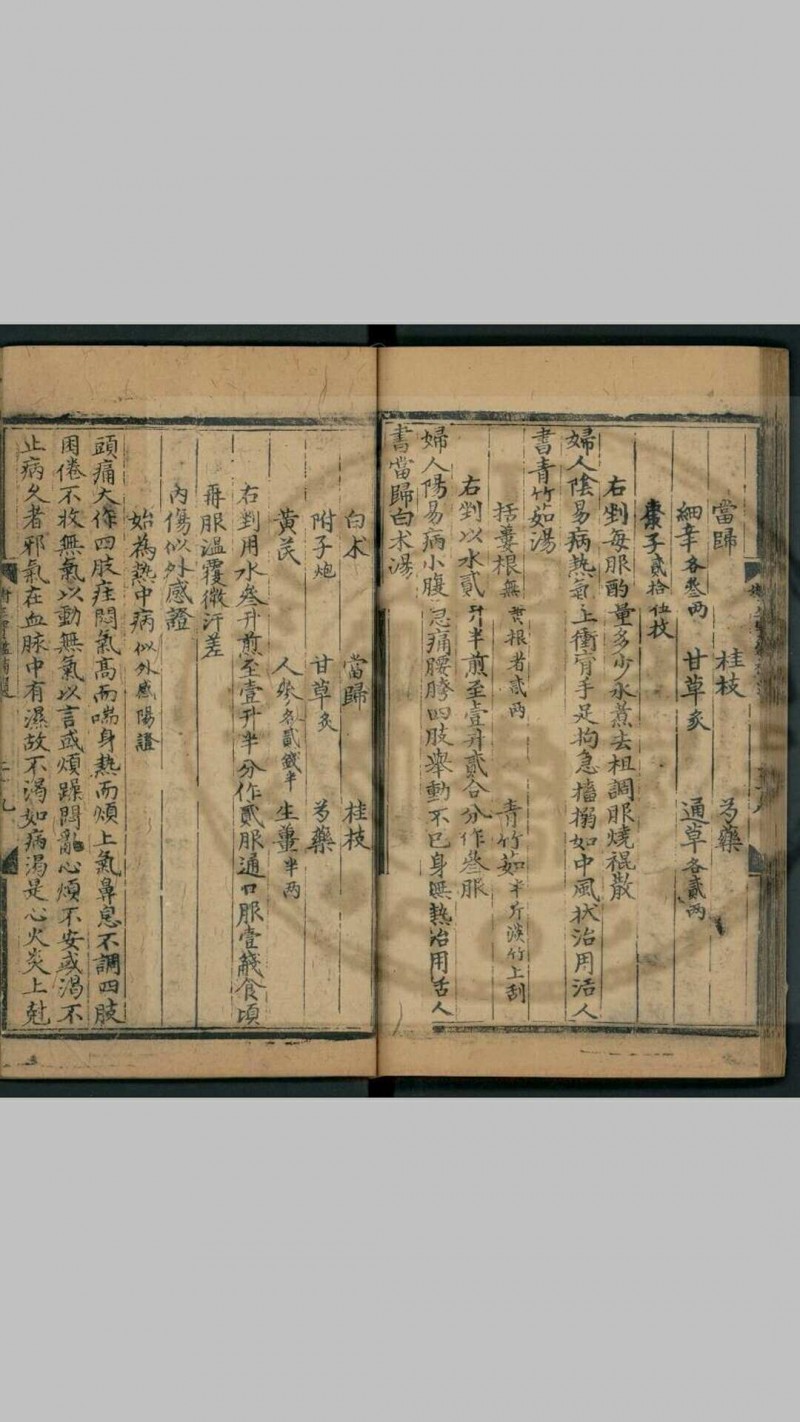 當歸 桂枝 芍藥
細辛各叄两 甘草炙 通草各貳两
棗子貳拾伍枚
右剉每服酌量多少水煮去柤調服燒裩散
婦人陰易病熱氣上衝胷手足拘急搐搦如中風状治用活人
書青竹茹湯
括蔞根無黄根者貳两 青竹茹半斤淡竹上刮
右剉以水貳升半煎至壹升貳合分作叄服
婦人陽易病小腹急痛腰胯四肢舉動不已身無熱治用活人
書當歸白术湯
白术 當歸 桂枝
附子炮 甘草炙 芍藥
黃芪 人參各貳錢半 生薑半两
右剉用水叄升煎至壹升半分作貳服通口服壹餞食頃
再服温覆微汗差
內傷似外感證
始為熱中病似外感陽證
頭痛大作四肢疰悶氣高而喘身熱而煩上氣鼻息不調四肢
困倦不收無氣以動無氣以言或煩躁悶亂心煩不安或渴不
止病久者邪氣在血脉中有濕故不渴如病渴是心火炎上尅